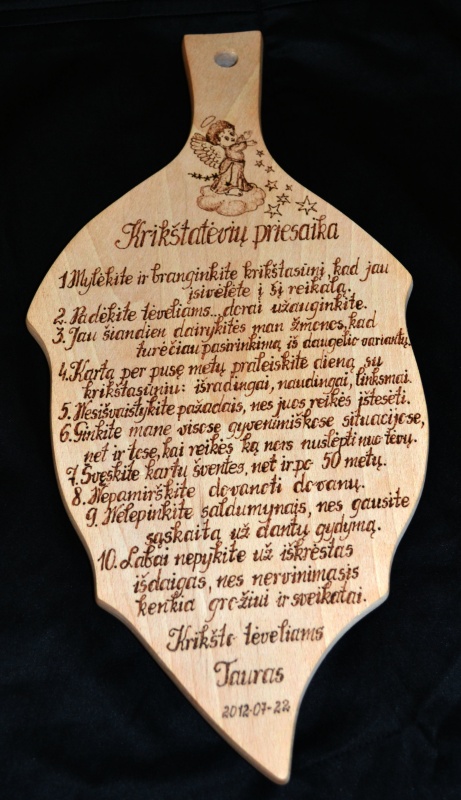 Krikštatėvių priesaika
1. Mylėkite ir branginkite krikštasūnį, kad jau
įsivėlėte į šį reikalą.
2. Padėkite tėveliams.. dorai užauginkite.
3. Jau šiandien dairykitės man žmonos, kad
turėčiau pasirinkimą iš daugelio variantų.
4. Kartą per pusę metų praleiskite dieną su
krikštasūniu: išradingai, naudingai, linksmai.
5. Nesišvaistykite pažadais, nes juos reikės ištesėti.
6. Ginkite mane visose gyvenimiškose situacijose,
net ir tose, kai reikės ką nors nuslėpti nuo tėvų.
7. Švęskite kartu šventes, net ir po 50 metų.
8. Nepamirškite dovanoti dovanų.
9. Nelepinkite saldumynais, nes gausite
sąskaitą už dantų gydymą.
10. Labai nepykite už iškrėstas
išdaigas, nes nervinimasis
kenkia grožiui ir sveikatai.
Krikšto tėveliams
Tauras
2012-07-22